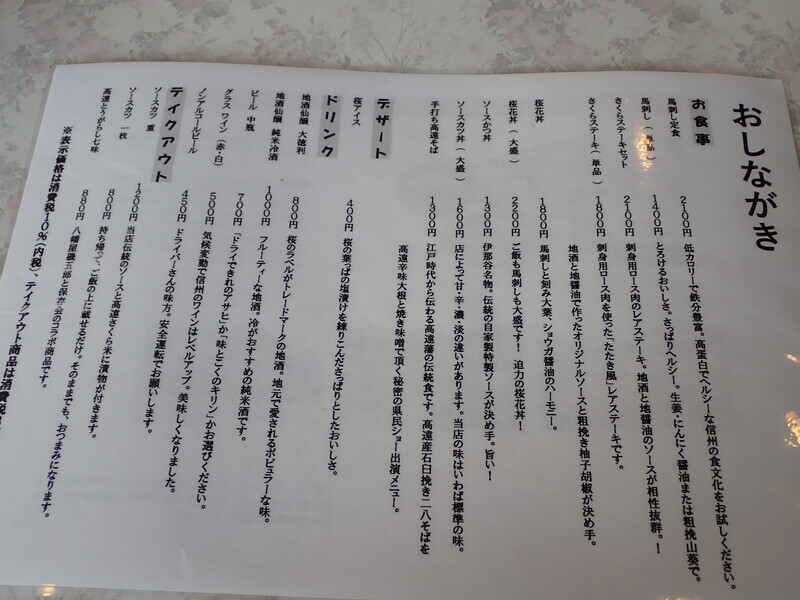 おしながき
お食事
馬刺し定食 2100円 低カロリーで鉄分豊富。高蛋白でヘルシーな信州の食文化をお試しください。
馬刺し(単品) 1400円 とろけるおいしさ。さっぱりヘルシー。生姜・にんにく醤油または粗挽山葵で。
さくらステーキセット 2100円 刺身用ロース肉のレアステーキ。地酒と地醤油のソースが相性抜群。!
さくらステーキ(単品) 1800円 刺身用ロース肉を使った「たたき風」レアステーキです。
地酒と地醤油で作ったオリジナルソースと粗挽き柚子胡椒が決め手。
桜花丼 1800円 馬刺しと刻み大葉、ショウガ醤油のハーモニー。
桜花丼(大盛) 2200円 ご飯も馬刺しも大盛です! 迫力の桜花丼!
ソースかつ丼 1300円 伊那谷名物。伝統の自家製特製ソースが決め手。旨い!
ソースカツ丼(大盛) 1600円 店によって甘・辛・濃・淡の違いがあります。当店の味はいわば標準の味。
手打ち高遠そば 1300円 江戸時代から伝わる高遠藩の伝統食です。高遠産石臼挽き二八そばを
高遠辛味大根と焼き味噌で頂く秘密の県民ショー出演メニュー。
デザート
桜アイス 400円 桜の葉っぱの塩漬けを練りこんださっぱりとしたおいしさ。
ドリンク
地酒仙醸 大徳利 800円 桜のラベルがトレードマークの地酒。地元で愛されるポピュラーな味。
地酒仙醸 純米冷酒 1000円 フルーティーな地酒。冷がおすすめの純米酒です。
ビール 中瓶 700円 「ドイできれのアサヒ」か「味とこくのキリン」かお選びください。
グラスワイン(赤・白) 500円 気候変動で信州のワインはレベルアップ。美味しくなりました。
ノンアルコールビール 450円 ドライバーさんの味方。安全運転でお願いします。
テイクアウト
ソースカツ 重 1200円 当店伝統のソースと高遠さくら米に漬物が付きます。
ソースカツ 一枚 800円 持ち帰って、ご飯の上に載せるだけ。そのままでも、おつまみになります。
高遠とうがらし七味 880円 八幡屋礒五郎と保存会のコラボ商品です。
※表示価格は消費税10%(内税)、テイクアウト商品は消費税